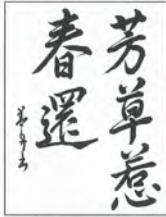 芳草惹
春還